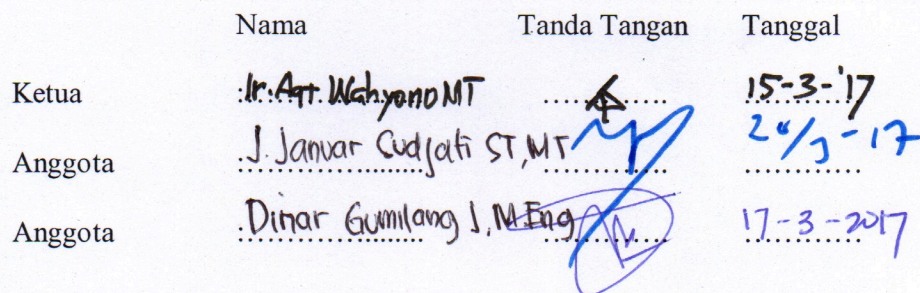 Nama Tanda Tangan Tanggal
Ketua : Ir. Agt. Wahyono MT 15-3-'17
Anggota : J. Januar Sudjati ST, MT 20/3-17
Anggota : Dinar Gumilang J, M.Eng 17-3-2017